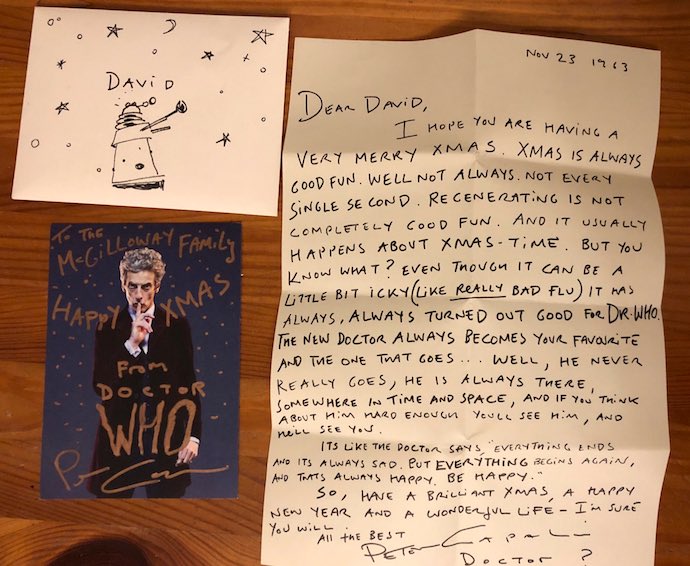 DAVID
TO THE
McGILLOWAY FAMILY
HAPPY XMAS
FROM
DOCTOR
WHO
NOV 23 1963
DEAR DAVID,
I HOPE YOU ARE HAVING A
VERY MERRY XMAS. XMAS IS ALWAYS
GOOD FUN. WELL NOT ALWAYS. NOT EVERY
SINGLE SECOND. REGENERATING IS NOT
COMPLETELY GOOD FUN. AND IT USUALLY
HAPPENS ABOUT XMAS-TIME. BUT YOU
KNOW WHAT? EVEN THOUGH IT CAN BE A
LITTLE BIT ICKY (LIKE REALLY BAD FLU) IT HAS
ALWAYS, ALWAYS TURNED OUT GOOD FOR DR. WHO.
THE NEW DOCTOR ALWAYS BECOMES YOUR FAVOURITE
AND THE ONE THAT GOES... WELL, HE NEVER
REALLY GOES, HE IS ALWAYS THERE,
SOMEWHERE IN TIME AND SPACE, AND IF YOU THINK
ABOUT HIM HARD ENOUGH YOULL SEE HIM, AND
HE'LL SEE YOU.
ITS LIKE THE DOCTOR SAYS, "EVERYTHING ENDS
AND ITS ALWAYS SAD. BUT EVERYTHING BEGINS AGAIN,
AND THATS ALWAYS HAPPY. BE HAPPY."
SO, HAVE A BRILLIANT XMAS, A HAPPY
NEW YEAR AND A WONDERFUL LIFE - I'M SURE
YOU WILL.
ALL THE BEST
PETER CAPALDI
DOCTOR ?